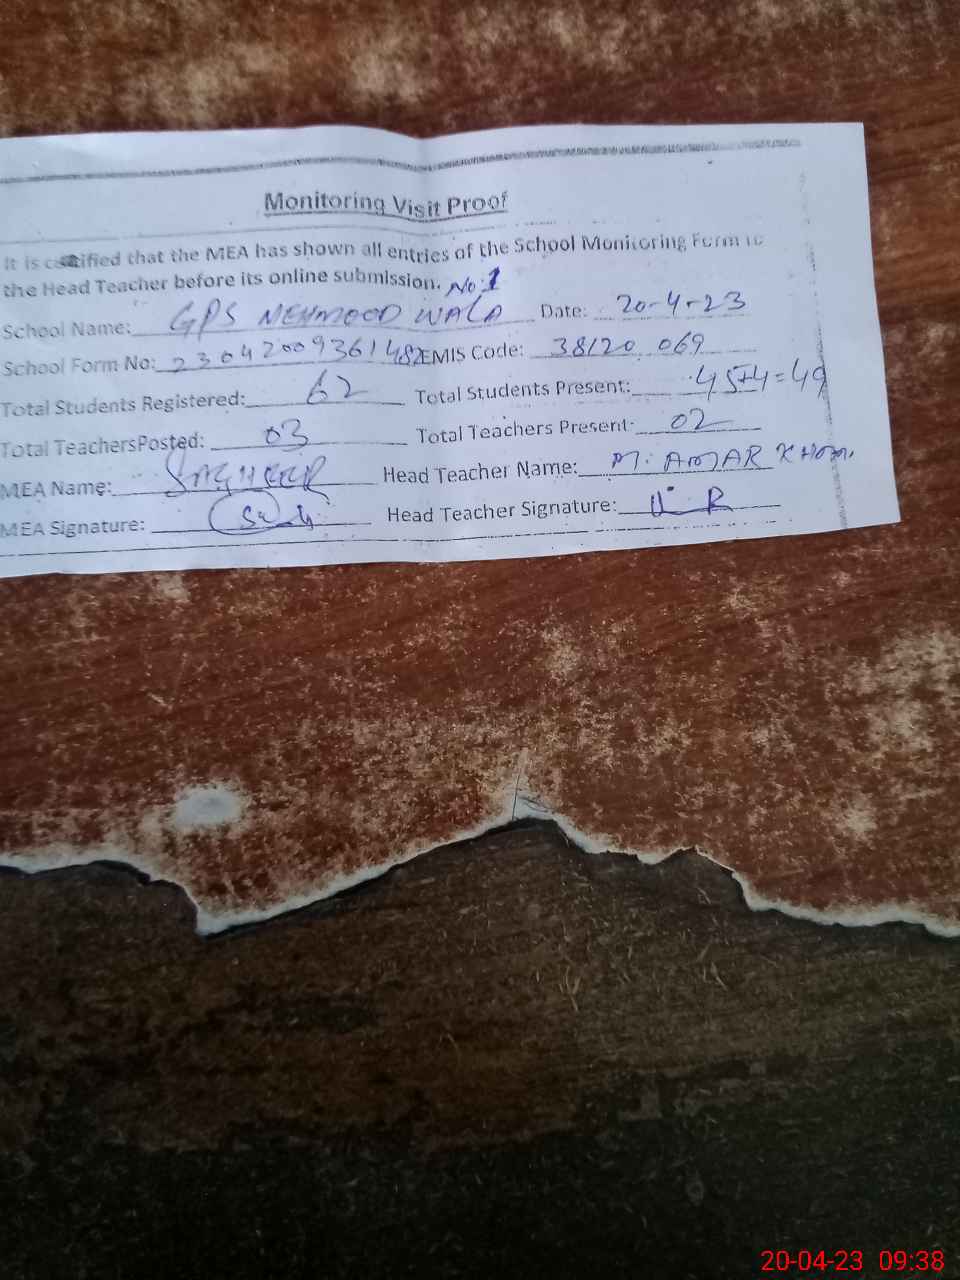 Monitoring Visit Proof
It is certified that the MEA has shown all entries of the School Monitoring Form to
the Head Teacher before its online submission. No 1
School Name: GPS MEHMOOD WALA Date: 20-4-23
School Form No: 23042009361482 EMIS Code: 38120 069
Total Students Registered: 62 Total Students Present: 45+4=49
Total TeachersPosted: 03 Total Teachers Present: 02
MEA Name: Head Teacher Name: M. AMAR
MEA Signature: Head Teacher Signature:
20-04-23 09:38